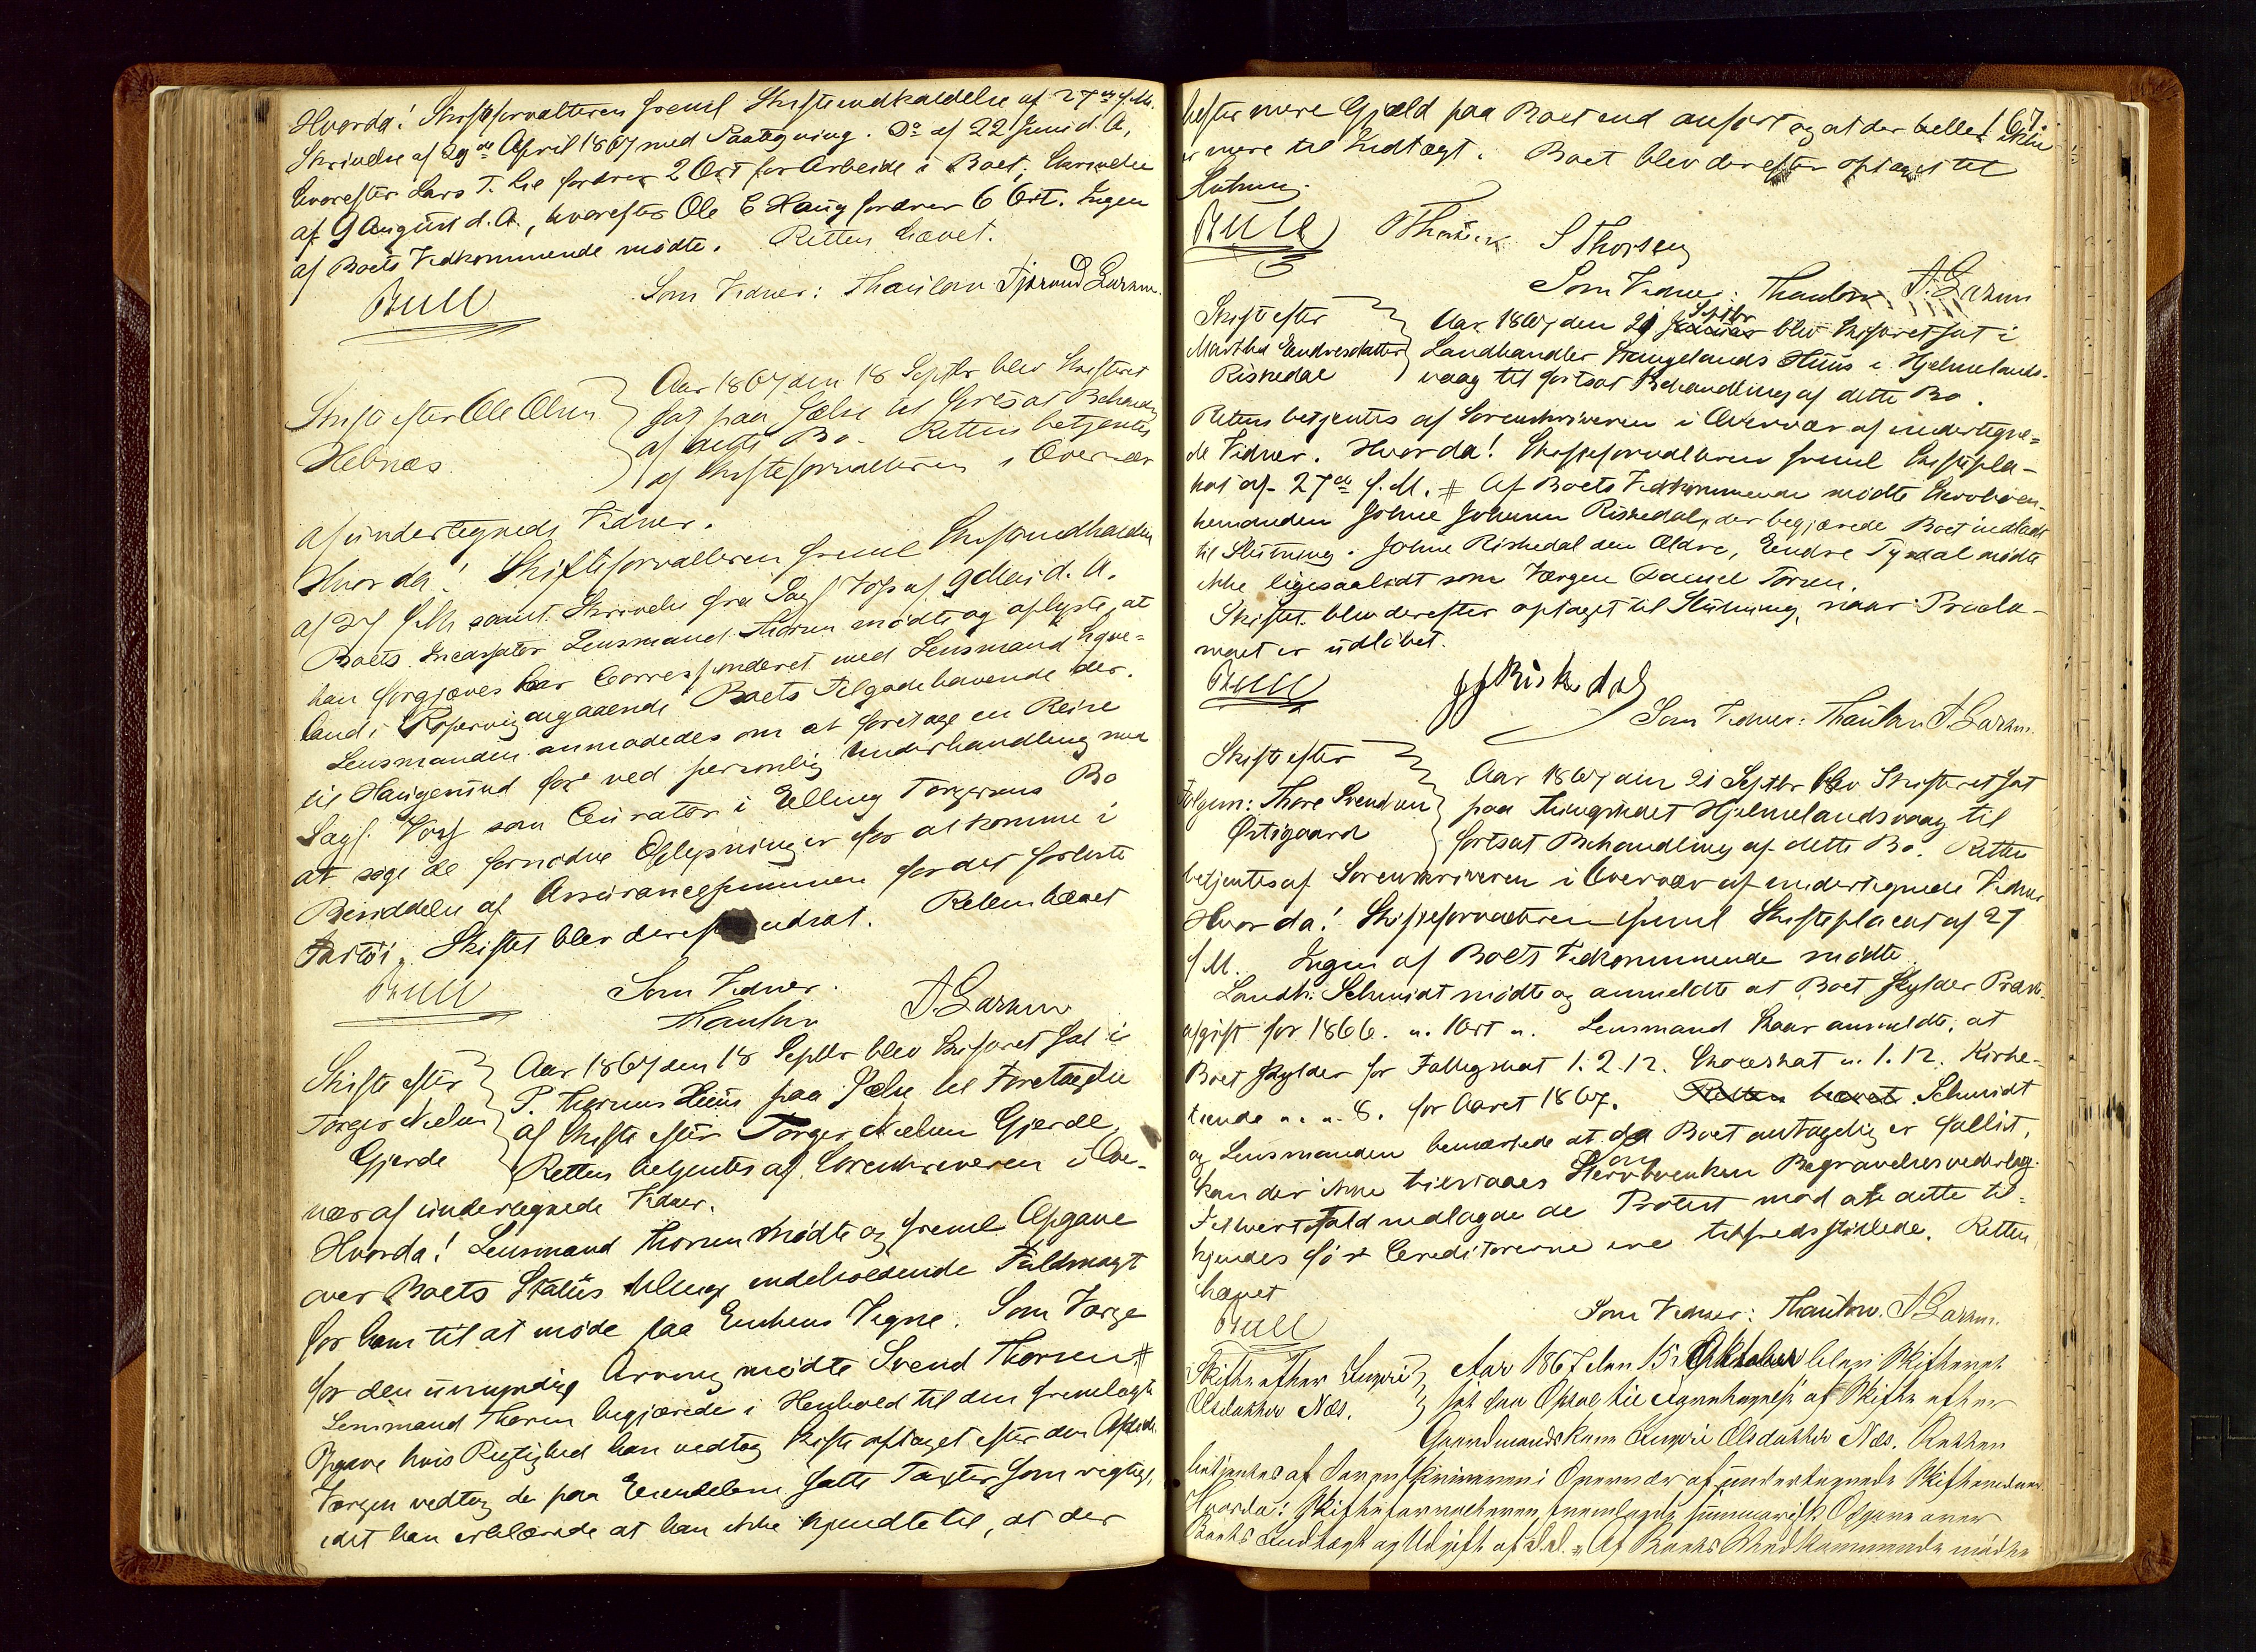 Hvorda! Skifteforvalteren freml Skifteindkaldelse af 27de f. M.
Skrivelse af 29de April 1867 med Paategning. Do af 22 Juni d. A.,
hvorefter Lars T. Lie fordrer 2 Ort for Arbeide i Boet; Skrivelse
af 9 August d. A., hvorefter Ole E Haug fordrer 6 Ort. Ingen
af Boets Vedkommende mødte. Retten hævet.
Bull Som Vidner: Thaulow Tjerand Larsen.
Skifte efter Ole Olsen
Hebnæs
Aar 1867 den 18 Septbr blev Skifteret
sat paa Jælse til fortsat Behandlg
af dette Bo. Retten betjentes
af Skifteforvalteren i Overvær
af undertegnede Vidner.
Hvorda! Skifteforvalteren freml Skifteindkaldelse
af 27 f. M. samt Skrivelse fra Sagf. Voss af 9 Mai d. A.
Boets Incassator Lensmand Thorsen mødte og oplyste, at
han forgjæves har Correspenderet med Lensmand
land i angaaende Boets Tilgodehavende der.
Lensmanden anmodedes om at foretage en Reise
til Haugesund for ved personlig Underhandling med
Sagf. Voss som Curator i Elling Torgersens Bo
at søge de fornødne Oplysninger for at komme i
Besiddelse af Assurancesummen for det forliste
Fartøi. Skiftet blev deref udsat. Retten hævet
Bull Som Vidner.
Thaulow T. Larsen
Skifte efter
Torger Nielsen
Gjerde
Aar 1867 den 18 Septbr blev Skifteret sat i
P. Thorsens Huus paa Jælse til Foretagelse
af Skifte efter Torger Nielsen Gjerde.
Retten betjentes af Sorenskriveren i Over-
vær af undertegnede Vidner.
Hvorda! Lensmand Thorsen mødte og freml Opgave
over Boets Status tillige indeholdende Fuldmagt
for ham til at møde paa Enkens Vegne. Som Værge
for den umyndige Arving mødte Svend Thorsen #
Lensmand Thorsen begjærede i Henhold til den fremlagte
Opgave hvis Rigtighed han vedtog Skifte optaget efter den Afdøde.
Værgen vedtog de paa Eiendelene satte Taxter som rigtige,
idet han erklærede at han ikke kjendte til, at der
167
hefter mere Gjæld paa Boet end anført og at der heller ikke
er mere til Indtægt. Boet blev derefter optaget til
Slutning.
Bull Thorsen S Thorsen
Som Vidner: Thaulow T. Larsen
Skifte efter
Martha Endresdatter
Riskedal
Aar 1867 den 21 Januar Septbr blev Skifteret sat i
Landhandler Haugelands Huus i Hjelmelands-
vaag til fortsat Behandling af dette Bo.
Retten betjentes af Sorenskriveren i Overvær af undertegne=
de Vidner. Hvorda! Skifteforvalteren freml Skiftepla-
kat af 27de f. M. # Af Boets Vedkommende mødte Stervboen-
kemanden Johne Johnsen Riskedal, der begjærede Boet indladt
til Slutning. Johne Riskedal den Ældre, Endre Tysdal mødte
ikke ligesaalidt som Værgen Daniel Torsen.
Skiftet blev derefter optaget til Slutning, naar Procla-
maet er udløbet.
Bull JJRiskedal
Som Vidner: Thaulow T. Larsen.
Skifte efter
Følgen: Thore Svendsen
Østigaard
Aar 1867 den 21 Septbr blev Skifteret sat
paa Thingstedet Hjelmelandsvaag til
fortsat Behandling af dette Bo. Retten
betjentes af Sorenskriveren i Overvær af undertegnede Vidner
Hvorda! Skifteforvalteren freml Skifteplacat af 27
f. M. Ingen af Boets Vedkommende mødte.
Landh. Schmidt mødte og anmeldte at Boet skylder Præste-
afgift for 1866. „. 1 Ort „. Lensmand Skaar anmeldte, at
Boet skylder for Fattigskat 1. 2. 12. Skoleskat „. 1. 12. Kirke-
tiende „. „. 8. for Aaret 1867. Retten hævet. Schmidt
og Lensmanden bemærkede at da Boet antagelig er fallit,
kan der ikke tilstaaes Stervboenken Begravelsesvederlag.
I ethvert Fald nedlagde de Protest mod at dette til-
kjendes før Creditorerne ere tilfredsstillede. Retten
hævet
Bull Som Vidner: Thaulow. T. Larsen.
Skifte efter Ingeri
Olsdatter Næs.
Aar 1867 den 15 Oktober blev Skifteret
sat paa til Foretagelse af Skifte efter
Gaardmandskone Ingeri Olsdatter Næs. Retten
betjentes af Sorenskriveren i Overvær af undertegnede Skiftevidner.
Hvorda! Skifteforvalteren fremlagde summarisk Opgave over
Boets Indtægt og Udgift af D.D. „ Af Boets Vedkommende mødte